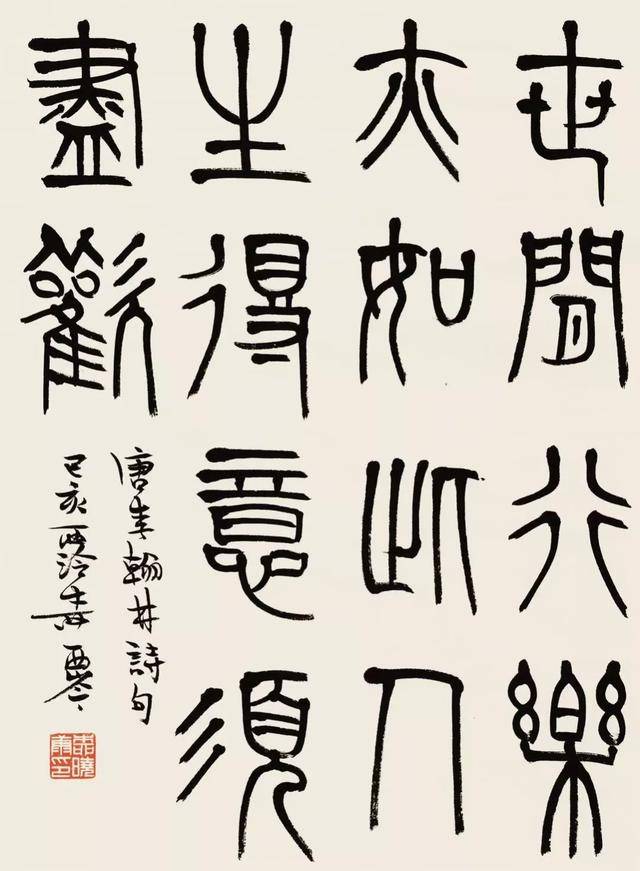 世間行樂
亦如此人
生得意須
盡歡
唐李翰林詩句
己亥西泠